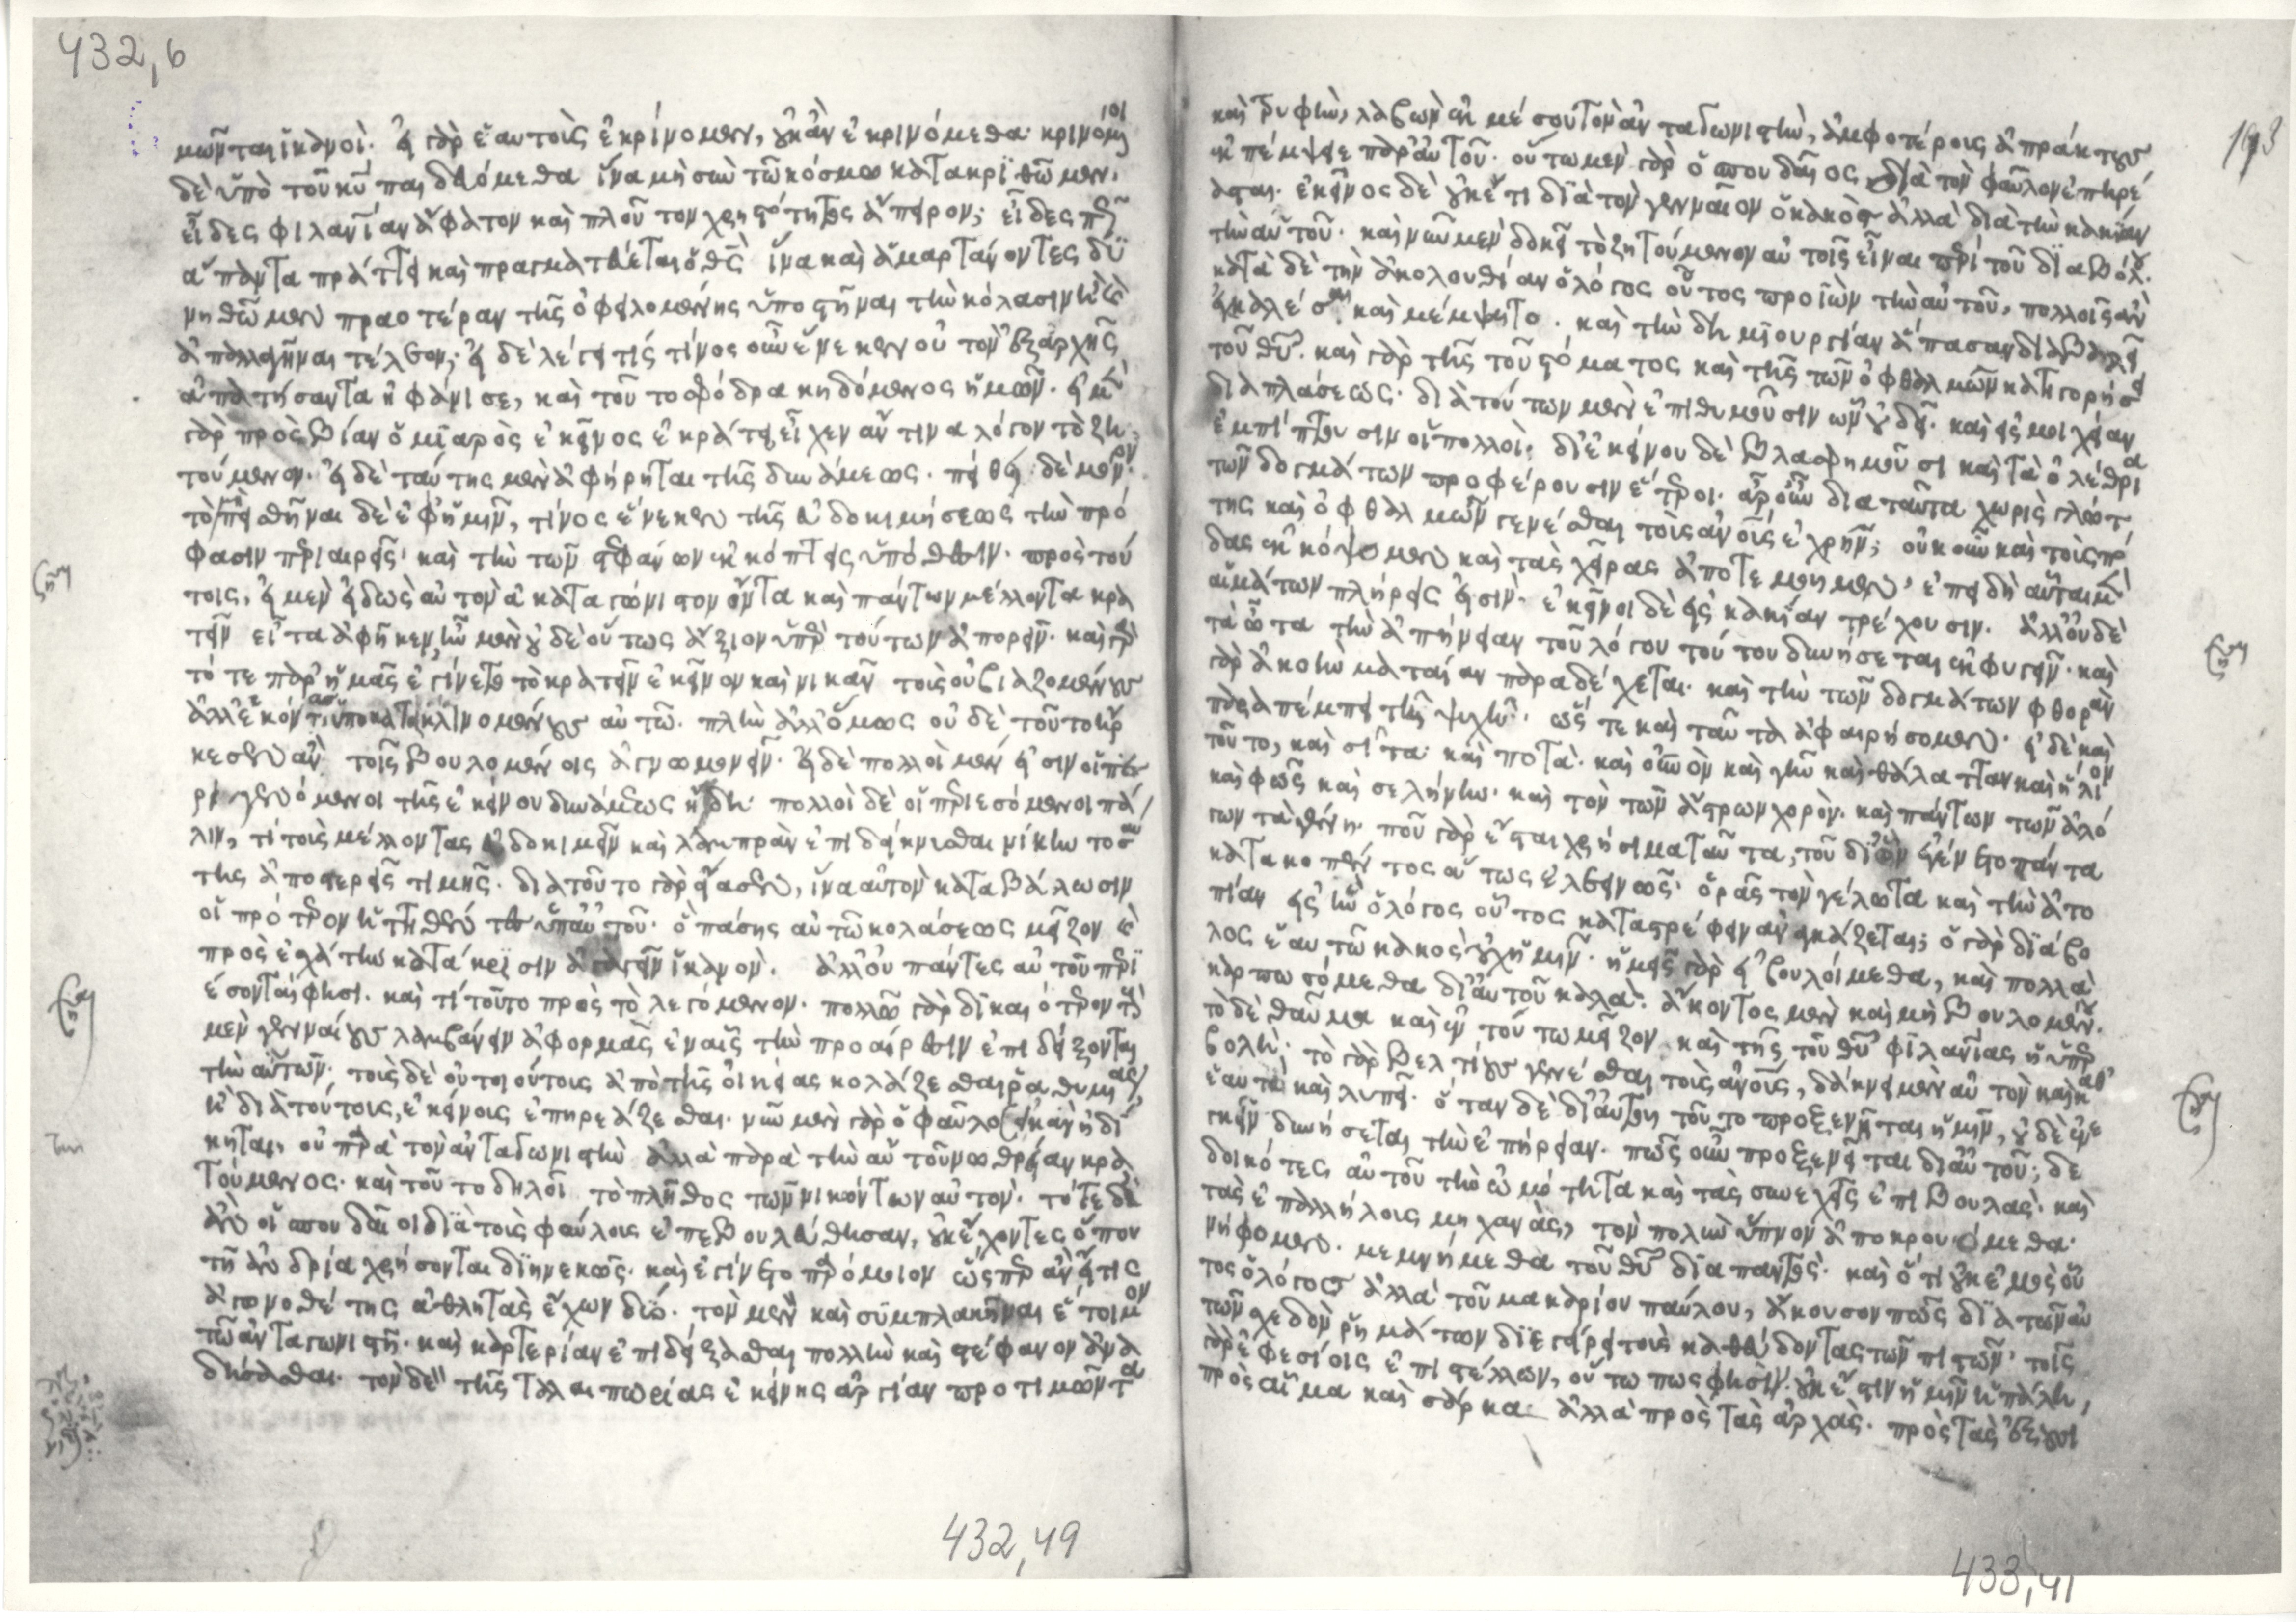 μῶνται ἱκανοί. εἰ γὰρ ἑαυτοὺς ἐκρίνομεν, οὐκ ἂν ἐκρινόμεθα· κρινόμενοι
δὲ ὑπὸ τοῦ κυ παιδευόμεθα ἵνα μὴ σὺν τῷ κόσμῳ κατακριθῶμεν.
εἶδες φιλανίαν ἄφατον καὶ πλοῦτον χρηστότητος ἄπειρον; εἶδες πῶς
ἅπαντα πράττει καὶ πραγματεύεται ὁ θς ἵνα καὶ ἁμαρτάνοντες δυ
νηθῶμεν πραοτέραν τῆς ὀφειλομένης ὑποστῆναι τὴν κόλασιν ἢ καὶ
ἀπαλλαγῆναι τέλεον; εἰ δὲ λέγει τίς τίνος οὖν ἕνεκεν οὐ τὸν ἐξαρχῆς
ἀπατήσαντα ἠφάνισε, καὶ τοῦτο σφόδρα κηδόμενος ἡμῶν. εἰ μὲν
γὰρ πρὸς βίαν ὁ μιαρὸς ἐκεῖνος ἐκράτει, εἶχεν ἄν τινα λόγον τὸ ζη
τούμενον. εἰ δὲ ταύτης μὲν ἀφήρηται τῆς δυνάμεως. πείθει δὲ μόνον.
τὸ μὴ πεισθῆναι δὲ ἐφ' ἡμῖν, τίνος ἕνεκεν τῆς εὐδοκιμήσεως τὴν πρό
φασιν περιαιρεῖς· καὶ τὴν τῶν στεφάνων ἐκκόπτεις ὑπόθεσιν. πρὸς τού
τοις, εἰ μὲν εἰδὼς αὐτὸν ἀκαταγώνιστον ὄντα καὶ πάντων μέλλοντα κρα
τεῖν εἶτα ἀφῆκεν, ἦν μὲν οὐδὲ οὕτως ἄξιον ὑπὲρ τούτων ἀπορεῖν. καὶ γὰρ
τότε παρ' ἡμᾶς ἐγίνετο τὸ κρατεῖν ἐκεῖνον καὶ νικᾶν τοὺς οὐ βιαζομένους
ἀλλ' ἑκόντας ὑποκατακλινομένους αὐτῷ. πλὴν ἀλλ' ὅμως οὐδὲ τοῦτο ἤρ
κεσεν ἂν τοῖς βουλομένοις ἀγνωμονεῖν. εἰ δὲ πολλοὶ μέν εἰσιν οἱ πε
ριγενόμενοι τῆς ἐκείνου δυνάμεως ἤδη· πολλοὶ δὲ οἱ περιεσόμενοι πά
λιν, τί τοὺς μέλλοντας εὐδοκιμεῖν καὶ λαμπρὰν ἐπιδείκνυσθαι νίκην τοσαύ
της ἀποστερεῖς τιμῆς. διὰ τοῦτο γὰρ εἴασεν, ἵνα αὐτὸν καταβάλωσιν
οἱ πρότερον ἡττηθέντες ὑπ' αὐτοῦ. ὃ πάσης αὐτῷ κολάσεως μεῖζον καὶ
πρὸς ἐσχάτην κατάκρισιν ἀγαγεῖν ἱκανόν. ἀλλ' οὐ πάντες αὐτοῦ περι
έσονταί φησι. καὶ τί τοῦτο πρὸς τὸ λεγόμενον. πολλῷ γὰρ δικαιότερον τοὺς
μὲν γενναίους λαμβάνειν ἀφορμὰς ἐν αἷς τὴν προαίρεσιν ἐπιδείξονται
τὴν αὑτῶν· τοὺς δὲ οὐ τοιούτους ἀπὸ τῆς οἰκείας κολάζεσθαι ῥαθυμίας,
ἢ διὰ τούτους, ἐκείνους ἐπηρεάζεσθαι. νῦν μὲν γὰρ ὁ φαῦλος κἂν ἠδί
κηται, οὐ παρὰ τὸν ἀνταγωνιστὴν ἀλλὰ παρὰ τὴν αὑτοῦ νωθρείαν κρα
τούμενος. καὶ τοῦτο δηλοῖ τὸ πλῆθος τῶν νικώντων αὐτόν. τότε δὲ
ἂν οἱ σπουδαῖοι διὰ τοὺς φαύλους ἐπεβουλεύθησαν, οὐκ ἔχοντες ὅπου
τῇ ἀνδρίᾳ χρήσονται διηνεκῶς. καὶ ἐγίνετο παρόμοιον ὥσπερ ἂν εἴ τις
ἀγωνοθέτης ἀθλητὰς ἔχων δύο. τὸν μὲν καὶ συμπλακῆναι ἕτοιμον
τῷ ἀνταγωνιστῇ. καὶ καρτερίαν ἐπιδείξασθαι πολλὴν καὶ στέφανον ἀνα
δήσασθαι. τὸν δὲ τῆς ταλαιπωρίας ἐκείνης ἀργίαν προτιμῶντα
καὶ τρυφήν, λαβὼν ἐκ μέσου τὸν ἀνταγωνιστήν, ἀμφοτέρους ἀπράκτους
ἐκπέμψειε παρ' αὐτοῦ. οὕτω μὲν γὰρ ὁ σπουδαῖος διὰ τὸν φαῦλον ἐπηρέ
ασται. ἐκεῖνος δὲ οὐκέτι διὰ τὸν γενναῖον ὁ κακὸς ἀλλὰ διὰ τὴν κακίαν
τὴν αὑτοῦ. καὶ νῦν μὲν δοκεῖ τὸ ζητούμενον αὐτοῖς εἶναι περὶ τοῦ διαβόλου.
κατὰ δὲ τὴν ἀκολουθίαν ὁ λόγος οὗτος προϊὼν τὴν αὐτοῦ, πολλοῖς ἂν
ἐγκαλέσαι καὶ μέμψαιτο. καὶ τὴν δημιουργίαν ἅπασαν διαβαλεῖ
τοῦ θυ. καὶ γὰρ τῆς τοῦ στόματος καὶ τῆς τῶν ὀφθαλμῶν κατηγορήσει
διαπλάσεως. διὰ τούτων μὲν ἐπιθυμοῦσιν ὧν οὐ δεῖ. καὶ εἰς μοιχείαν
ἐμπίπτουσιν οἱ πολλοί. δι' ἐκείνου δὲ βλασφημοῦσι καὶ τὰ ὀλέθρια
τῶν δογμάτων προφέρουσιν ἕτεροι. ἆρ' οὖν διὰ ταῦτα χωρὶς γλώτ
της καὶ ὀφθαλμῶν γενέσθαι τοὺς ἀνους ἐχρῆν; οὐκοῦν καὶ τοὺς πό
δας ἐκκόψομεν καὶ τὰς χεῖρας ἀποτεμοῦμεν· ἐπειδὴ αὗται μὲν
αἱμάτων πλήρεις εἰσίν· ἐκεῖνοι δὲ εἰς κακίαν τρέχουσιν. ἀλλ' οὐδὲ
τὰ ὦτα τὴν ἀπήνειαν τοῦ λόγου τούτου δυνήσεται ἐκφυγεῖν. καὶ
γὰρ ἀκοὴν ματαίαν παραδέχεται. καὶ τὴν τῶν δογμάτων φθορὰν
παραπέμπει τῇ ψυχῇ. ὥστε καὶ ταῦτα ἀφαιρήσομεν. εἰ δὲ καὶ
τοῦτο, καὶ σιτία καὶ ποτά. καὶ οὐνον καὶ γῆν καὶ θάλατταν καὶ ἥλιον
καὶ φῶς καὶ σελήνην. καὶ τὸν τῶν ἄστρων χορόν. καὶ πάντων τῶν ἀλό
γων τὰ γένη. ποῦ γὰρ ἔσται χρήσιμα ταῦτα, τοῦ δι' ὃν ἐγένετο πάντα
κατακοπέντος οὕτως ἐλεεινῶς. ὁρᾷς τὸν γέλωτα καὶ τὴν ἀτο
πίαν εἰς ἣν ὁ λόγος οὗτος καταστρέφειν ἀναγκάζεται; ὁ γὰρ διάβο
λος ἑαυτῷ κακὸς οὐχ ἡμῖν. ἡμεῖς γὰρ εἰ βουλοίμεθα, καὶ πολλὰ
καρπωσόμεθα δι' αὐτοῦ καλά. ἄκοντος μὲν καὶ μὴ βουλομένου.
τὸ δὲ θαῦμα καὶ ἐν τούτῳ μεῖζον καὶ τῆς τοῦ θυ φιλανίας ἡ ὑπερ
βολή. τὸ γὰρ βελτίους γενέσθαι τοὺς ἀνους, δάκνει μὲν αὐτὸν καὶ καθ'
ἑαυτὸ καὶ λυπεῖ. ὅταν δὲ δι' αὐτοῦ τοῦτο προξενῆται ἡμῖν, οὐδὲ ἐνε
γκεῖν δυνήσεται τὴν ἐπήρειαν. πῶς οὖν προξενεῖται δι' αὐτοῦ; δε
δοικότες αὐτοῦ τὴν ὠμότητα καὶ τὰς συνεχεῖς ἐπιβουλάς. καὶ
τὰς ἐπαλλήλους μηχανάς, τὸν πολὺν ὕπνον ἀποκρουόμεθα.
νήφομεν. μεμνήμεθα τοῦ θυ διαπαντός. καὶ ὅτι οὐκ ἐμὸς οὗ
τος ὁ λόγος ἀλλὰ τοῦ μακαρίου παύλου, ἄκουσον πῶς διὰ τῶν αὐ
τῶν σχεδὸν ῥημάτων διεγείρει τοὺς καθεύδοντας τῶν πιστῶν· τοῖς
γὰρ ἐφεσίοις ἐπιστέλλων, οὕτω πως φησίν. οὐκ ἔστιν ἡμῖν ἡ πάλη,
πρὸς αἷμα καὶ σάρκα· ἀλλὰ πρὸς τὰς ἀρχάς. πρὸς τὰς ἐξουσι
432,6
193
432,49
433,41